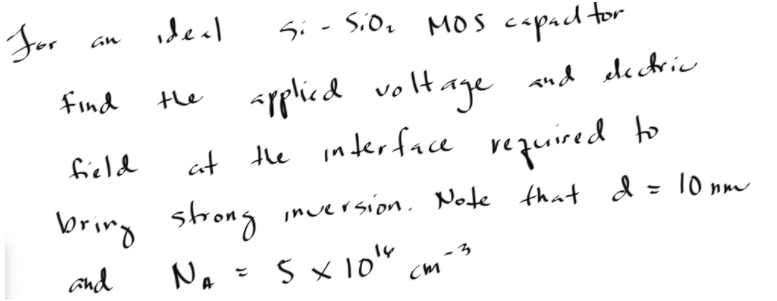 For an ideal Si - SiO₂ MOS capacitor
find the applied voltage and electric
field at the interface required to
bring strong inversion. Note that d = 10 nm
and N_A = 5 × 10¹⁶ cm⁻³